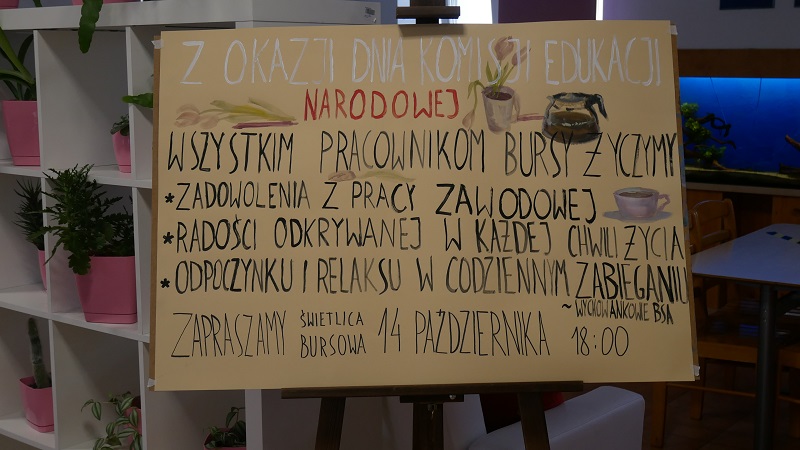 Z OKAZJI DNIA KOMISJI EDUKACJI
NARODOWEJ
WSZYSTKIM PRACOWNIKOM BURSY ŻYCZYMY
*ZADOWOLENIA Z PRACY ZAWODOWEJ
*RADOŚCI ODKRYWANEJ W KAŻDEJ CHWILI ŻYCIA
*ODPOCZYNKU I RELAKSU W CODZIENNYM ZABIEGANIU
~WYCHOWANKOWIE BSA
ZAPRASZAMY ŚWIETLICA BURSOWA 14 PAŹDZIERNIKA 18:00